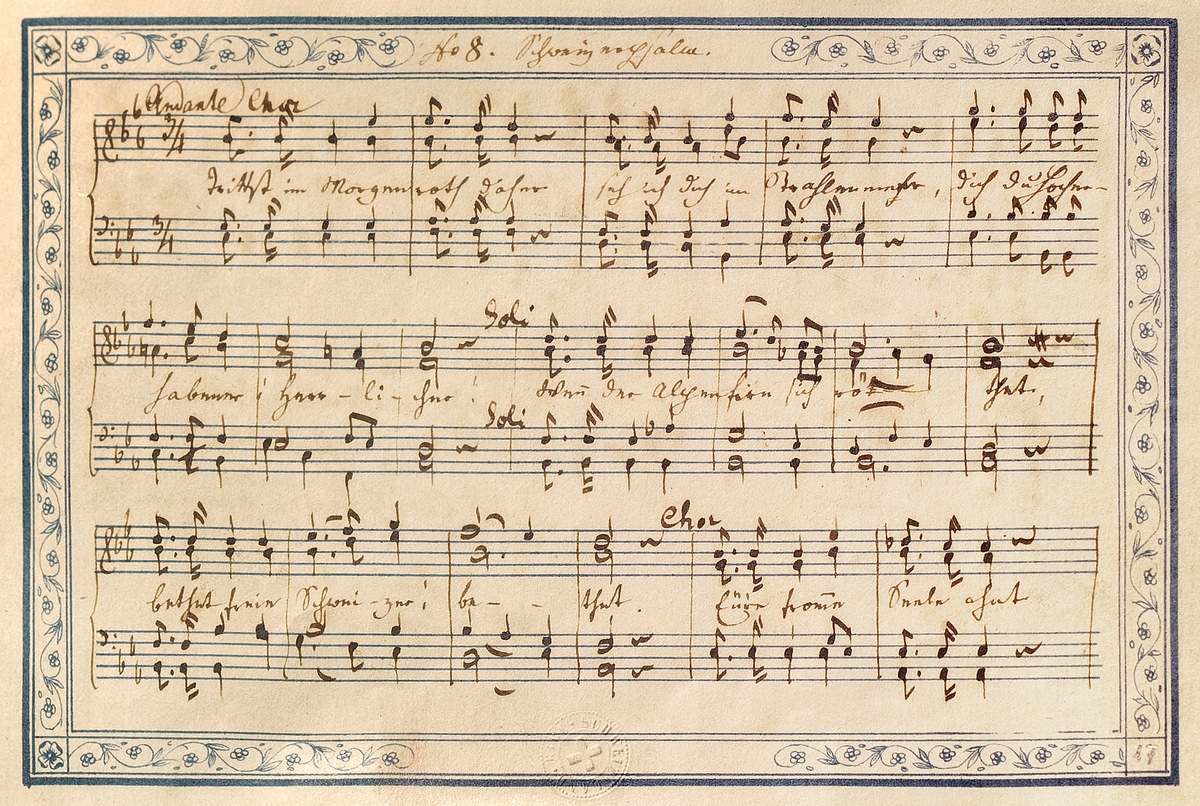 No 8. Schweizerpsalm.
Andante Chor
3/4
Trittst im Morgenroth daher seh ich dich im Strahlenmeer, dich du Hocher-
3/4
Soli
habener! Herr-li-cher! Wenn der Alpenfirn sich röt- thet,
Soli
Chor
bethet freie Schwei-zer! be- - thet. Eure fromme Seele ahnt